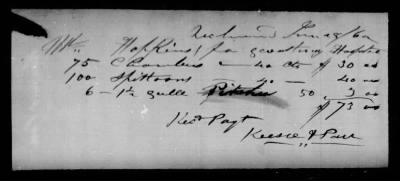 Richmond June 9 62
Wm Hopkins, for
75 Chambers — 40 cts $ 30 00
100 Spittoons — 40 — 40 00
6 — 1½ galls Pitcher 50 3 00
$ 73 00
Recd Payt
Keesee & Parr